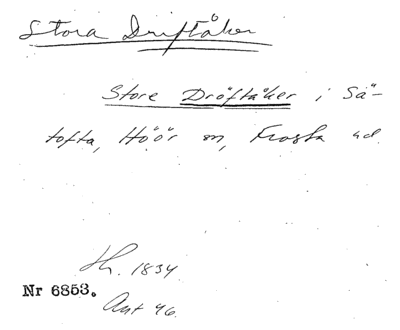 Stora Driftåker
Store Dröftåker i Sä-
tofta, Höör sn, Frosta hd.
Lh. 1834
Nr 6853.
Ant 46.